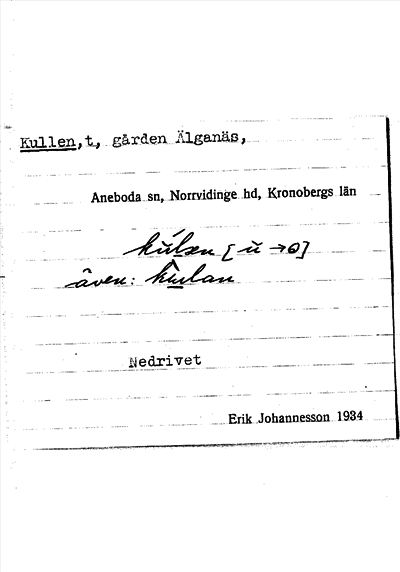 Kullen, t, gården Älganäs,
Aneboda sn, Norrvidinge hd, Kronobergs län
kúlæn [ŭ → o]
även: kulan
Nedrivet
Erik Johannesson 1934